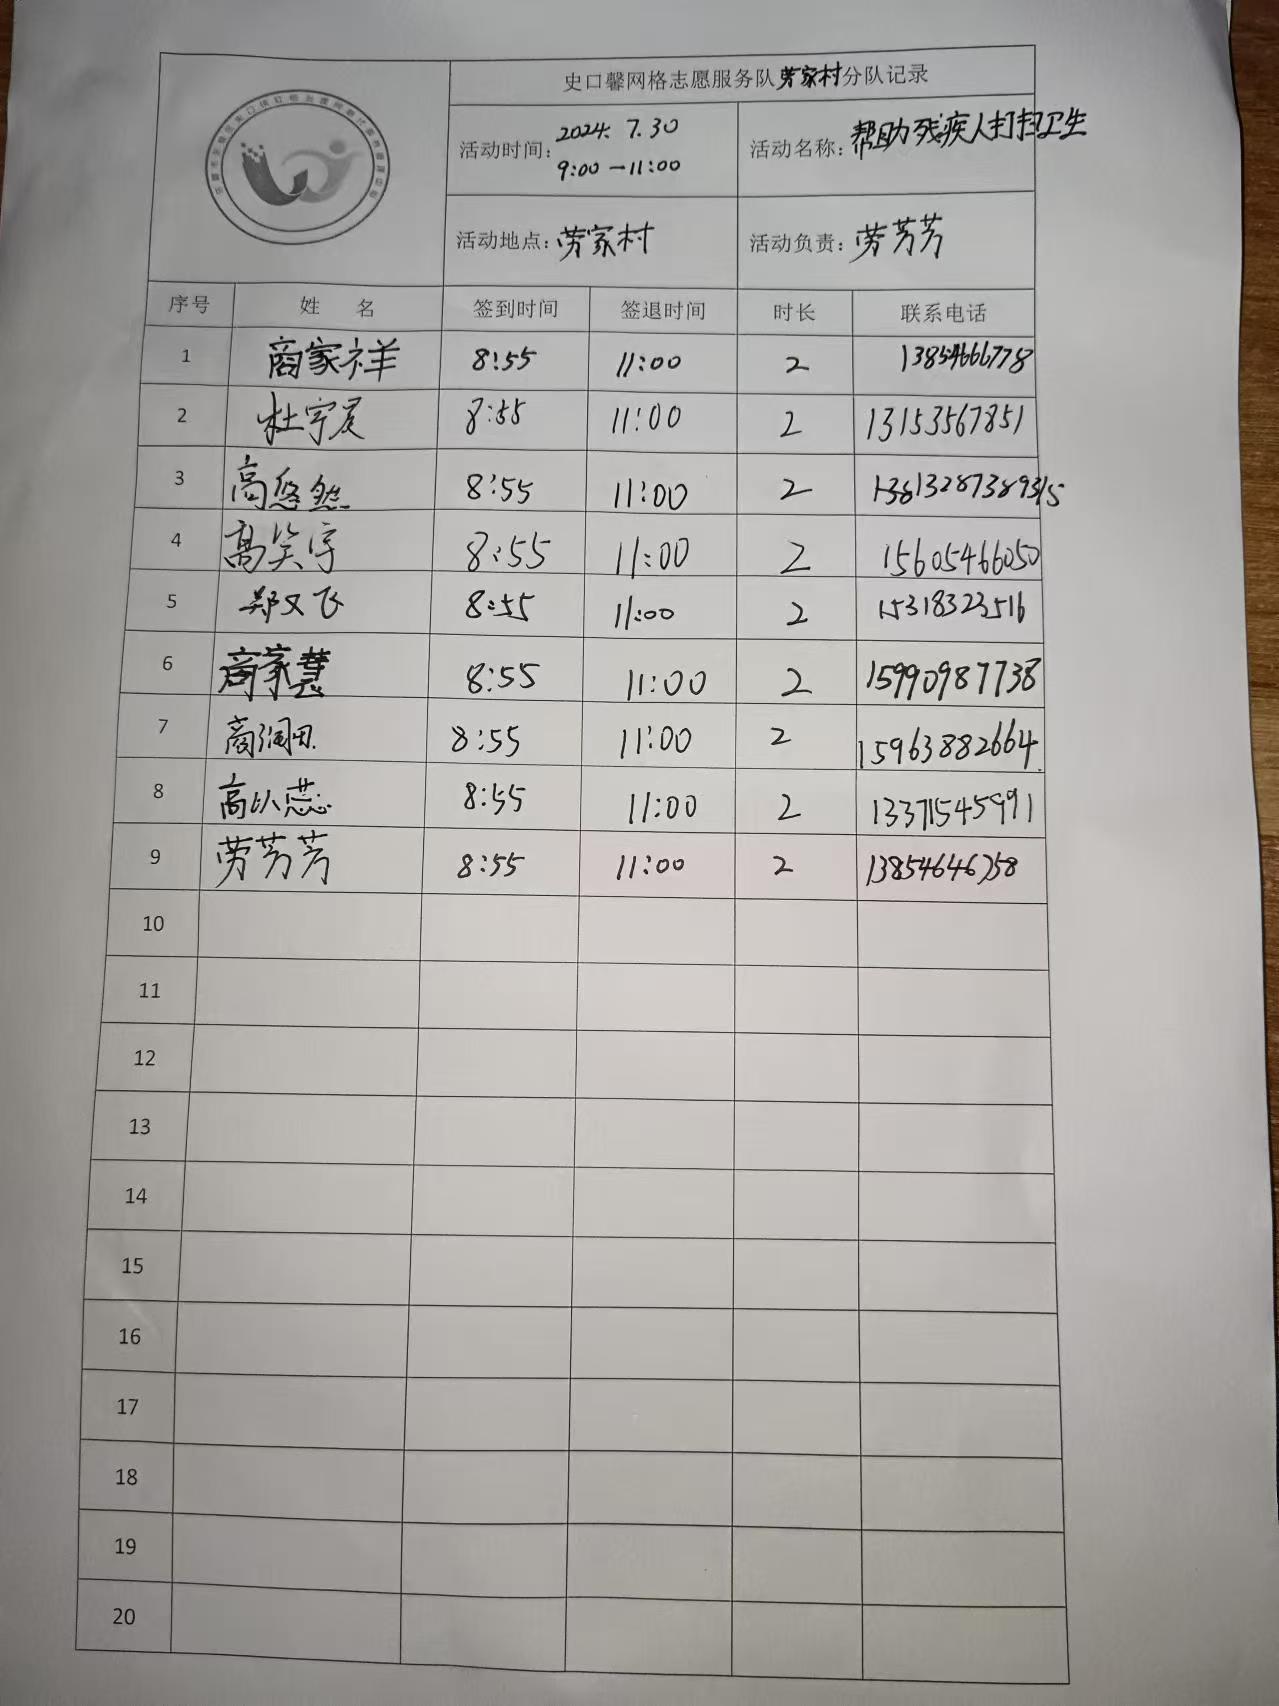 史口馨网格志愿服务队劳家村分队记录
活动时间: 2024. 7.30
9:00—11:00
活动名称: 帮助残疾人打扫卫生
活动地点: 劳家村
活动负责: 劳芳芳
序号 姓 名 签到时间 签退时间 时长 联系电话
1 商家祥 8:55 11:00 2 13854666778
2 8:55 11:00 2 13153567851
3 高悠然 8:55 11:00 2
4 高笑宇 8:55 11:00 2 15605466050
5 郑又飞 8:55 11:00 2 15318323516
6 商家慧 8:55 11:00 2 15990987738
7 商润田 8:55 11:00 2 15963882664
8 高以蕊 8:55 11:00 2 13371545991
9 劳芳芳 8:55 11:00 2 13854646758
10
11
12
13
14
15
16
17
18
19
20